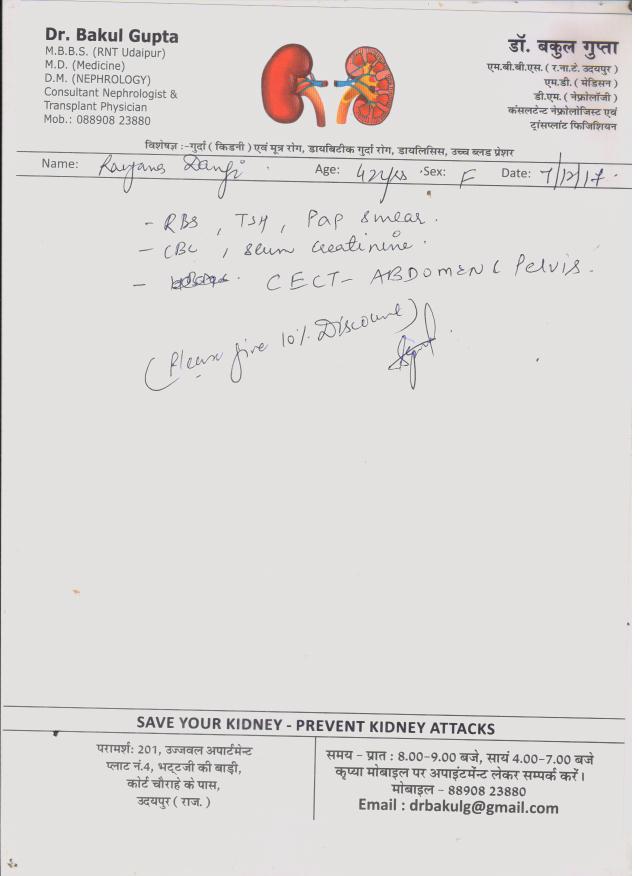 Dr. Bakul Gupta
M.B.B.S. (RNT Udaipur)
M.D. (Medicine)
D.M. (NEPHROLOGY)
Consultant Nephrologist &
Transplant Physician
Mob.: 088908 23880
डॉ. बकुल गुप्ता
एम.बी.बी.एस. ( र.ना.टे. उदयपुर )
एम.डी. ( मेडिसन )
डी.एम. ( नेफ्रोलॉजी )
कंसलटेन्ट नेफ्रोलोजिस्ट एवं
ट्रांसप्लांट फिजिशियन
विशेषज्ञ :-गुर्दा ( किडनी ) एवं मूत्र रोग, डायबिटीक गुर्दा रोग, डायलिसिस, उच्च ब्लड प्रेशर
Name: Dangi Age: 42 yrs Sex: F Date: 7/12/17
- RBS , TSH , Pap smear.
- CBC , serum creatinine.
- CECT- ABDOMEN & Pelvis.
(Please give 10% Discount)
SAVE YOUR KIDNEY - PREVENT KIDNEY ATTACKS
परामर्श: 201, उज्जवल अपार्टमेन्ट
प्लाट नं.4, भट्टजी की बाड़ी,
कोर्ट चौराहे के पास,
उदयपुर ( राज. )
समय - प्रात : 8.00-9.00 बजे, सायं 4.00-7.00 बजे
कृप्या मोबाइल पर अपाइंटमेंन्ट लेकर सम्पर्क करें।
मोबाइल - 88908 23880
Email : drbakulg@gmail.com